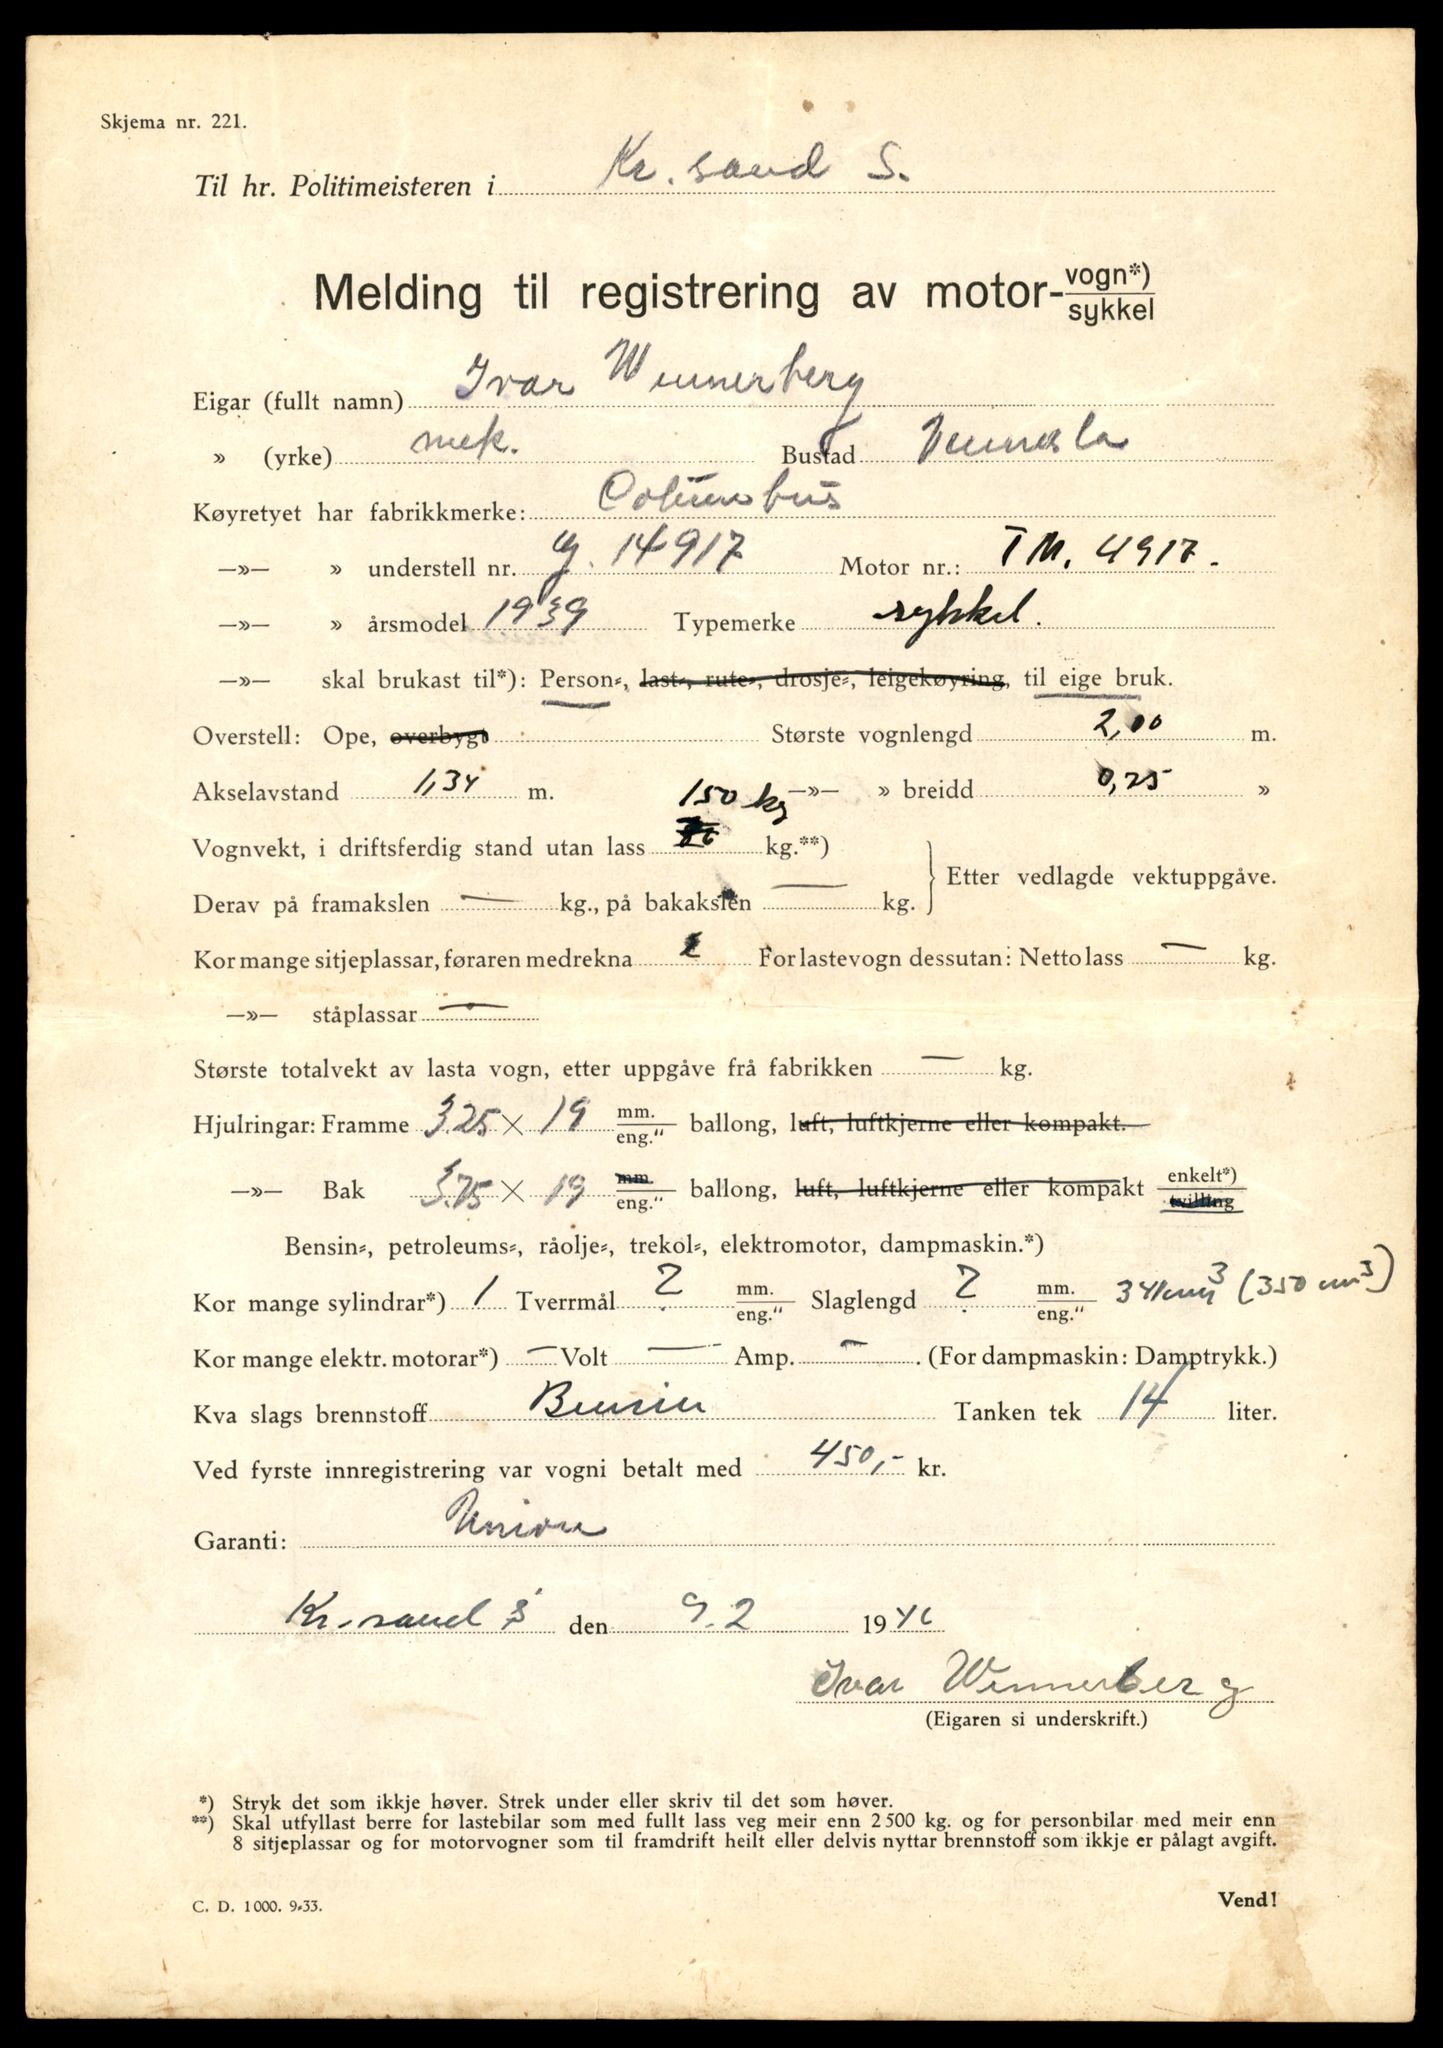 Skjema nr. 221.
Til hr. Politimeisteren i Kr. sand S.
Melding til registrering av motor-vogn*) sykkel
Eigar (fullt namn) Ivar Wennerberg
» (yrke) mek. Bustad Vennesla
Køyretyet har fabrikkmerke: Columbus
—»— » understell nr. G. 14917 Motor nr.: TM. 4917.
—»— » årsmodel 1939 Typemerke sykkel.
—»— skal brukast til*): Person-, last-, rute-, drosje-, leigekøyring, til eige bruk.
Overstell: Ope, overbygt Største vognlengd 2,00 m.
Akselavstand 1,34 m. —»— » breidd 0,25 »
150 kg
Vognvekt, i driftsferdig stand utan lass kg.**)
Derav på framakslen — kg., på bakakslen — kg. Etter vedlagde vektuppgåve.
Kor mange sitjeplassar, føraren medrekna 2 For lastevogn dessutan: Netto lass — kg.
—»— ståplassar —
Største totalvekt av lasta vogn, etter uppgåve frå fabrikken — kg.
Hjulringar: Framme 3.25 × 19 mm. eng." ballong, luft, luftkjerne eller kompakt.
—»— Bak 3.75 × 19 mm. eng." ballong, luft, luftkjerne eller kompakt enkelt*) tvilling
Bensin-, petroleums-, råolje-, trekol-, elektromotor, dampmaskin.*)
Kor mange sylindrar*) 1 Tverrmål ? mm. eng." Slaglengd ? mm. eng." 341 cm³ (350 cm³)
Kor mange elektr. motorar*) — Volt — Amp. — . (For dampmaskin: Damptrykk.)
Kva slags brennstoff Bensin Tanken tek 14 liter.
Ved fyrste innregistrering var vogni betalt med 450,- kr.
Garanti: Union
Kr.sand S den 9.2 1940
Ivar Wennerberg
(Eigaren si underskrift.)
*) Stryk det som ikkje høver. Strek under eller skriv til det som høver.
**) Skal utfyllast berre for lastebilar som med fullt lass veg meir enn 2500 kg. og for personbilar med meir enn
8 sitjeplassar og for motorvogner som til framdrift heilt eller delvis nyttar brennstoff som ikkje er pålagt avgift.
C. D. 1000. 9-33. Vend!